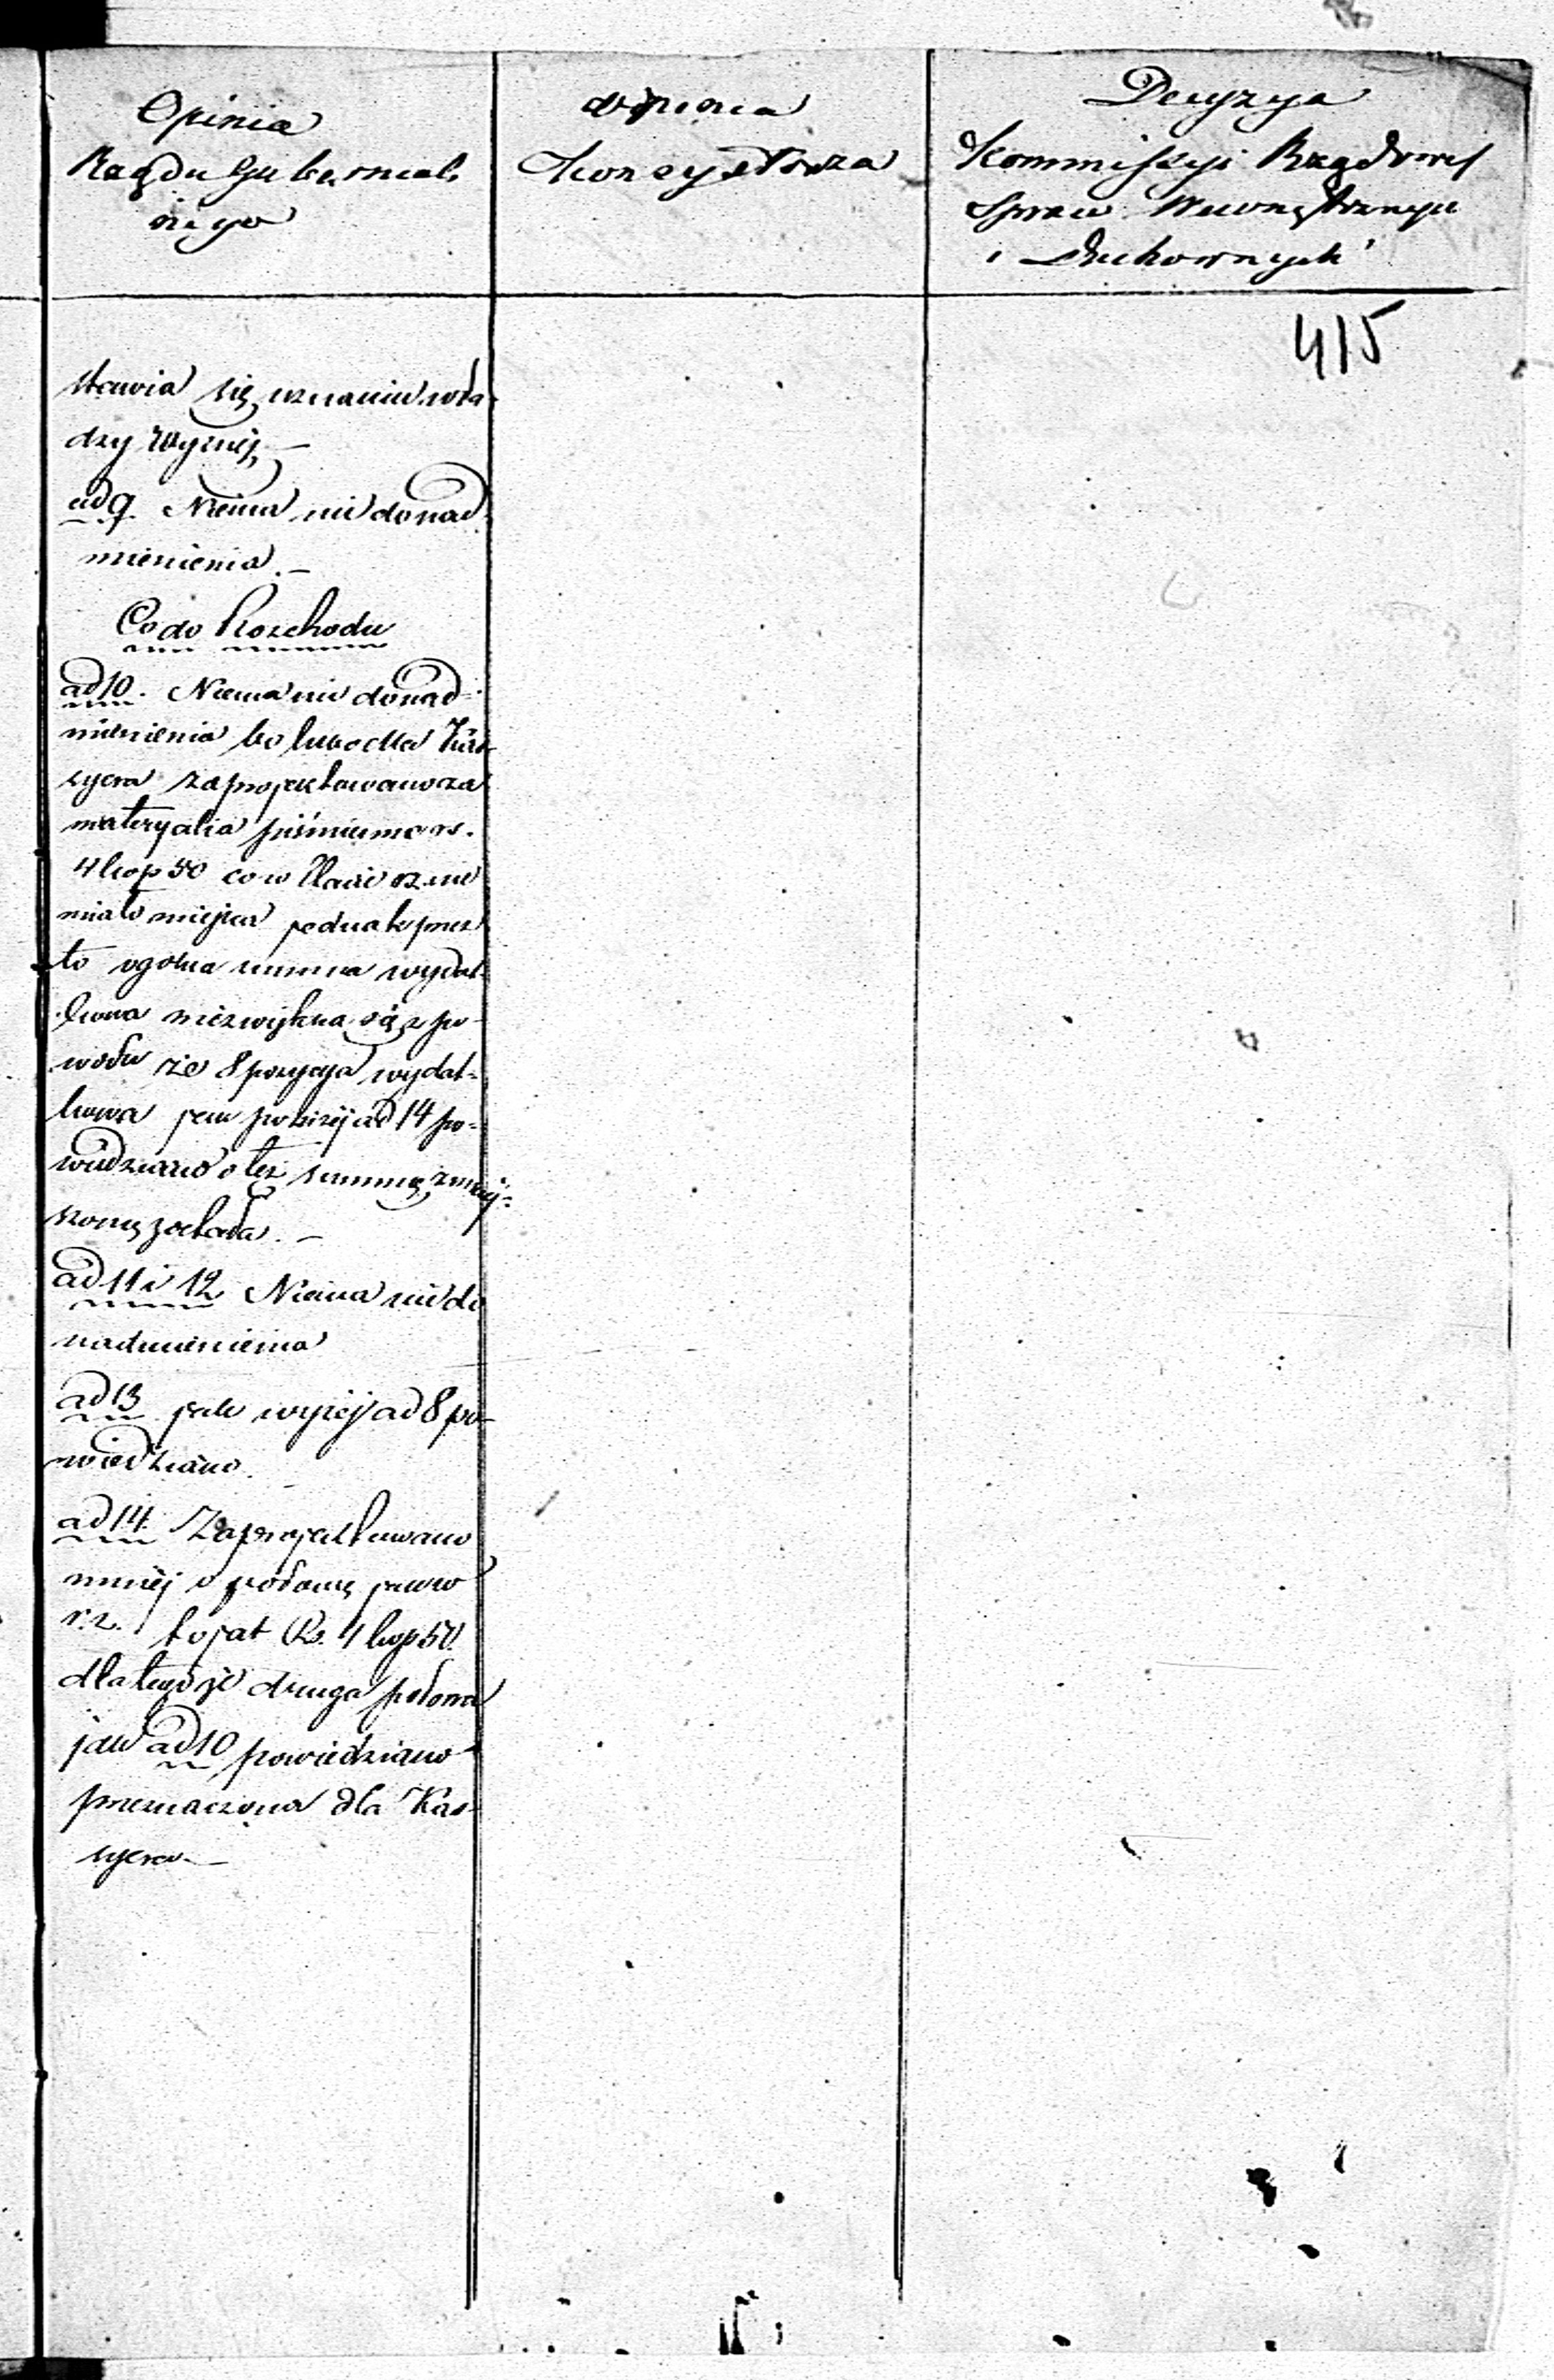 Opinia
Rządu Gubernial-
nego
Opinia
Konsystorza
Decyzya
Kommissyi Rządowej
Spraw Wewnętrznych
i Duchownych
415
stawia się uznaniu wła-
dzy Wyższej. —
ad 9. Niema nic do nad-
mienienia. —
Co do Rozchodu
ad 10. Niema nic do nad-
mienienia bo lubo dla Kas-
syera zaprojektowano za
materyalia piśmienne rs.
4 kop 50 co w Etacie oz. nie
miało miejsca jednak przez
to ogólna summa wydat-
kowa niezwiększa się z po-
wodu że 8 pozycya wydat-
kowa jak poniżej ad 14 po-
wiedziano o tęż summę zmniej-
szoną została. —
ad 11 i 12 Niema nic do
nadmienienia
ad 13 jak wyżej ad 8 po-
wiedziano.
ad 14. Zaprojektowano
mniej o połowę jak w
r. z. to jest Rs. 4 kop 50.
dla tego że druga połowa
jak ad 10 powiedziano
przeznaczona dla Kas-
syera. —